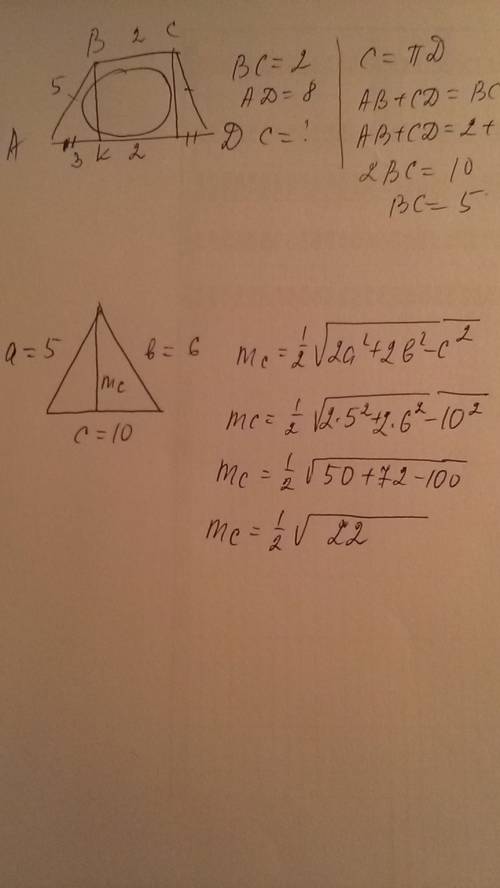 B 2 C
5
A 3 K 2 D
BC = 2
AD = 8
C = ?
C = πD
AB + CD = BC
AB + CD = 2 +
2BC = 10
BC = 5
a = 5
b = 6
mc
c = 10
mc = 1/2 √2a² + 2b² - c²
mc = 1/2 √2·5² + 2·6² - 10²
mc = 1/2 √50 + 72 - 100
mc = 1/2 √22